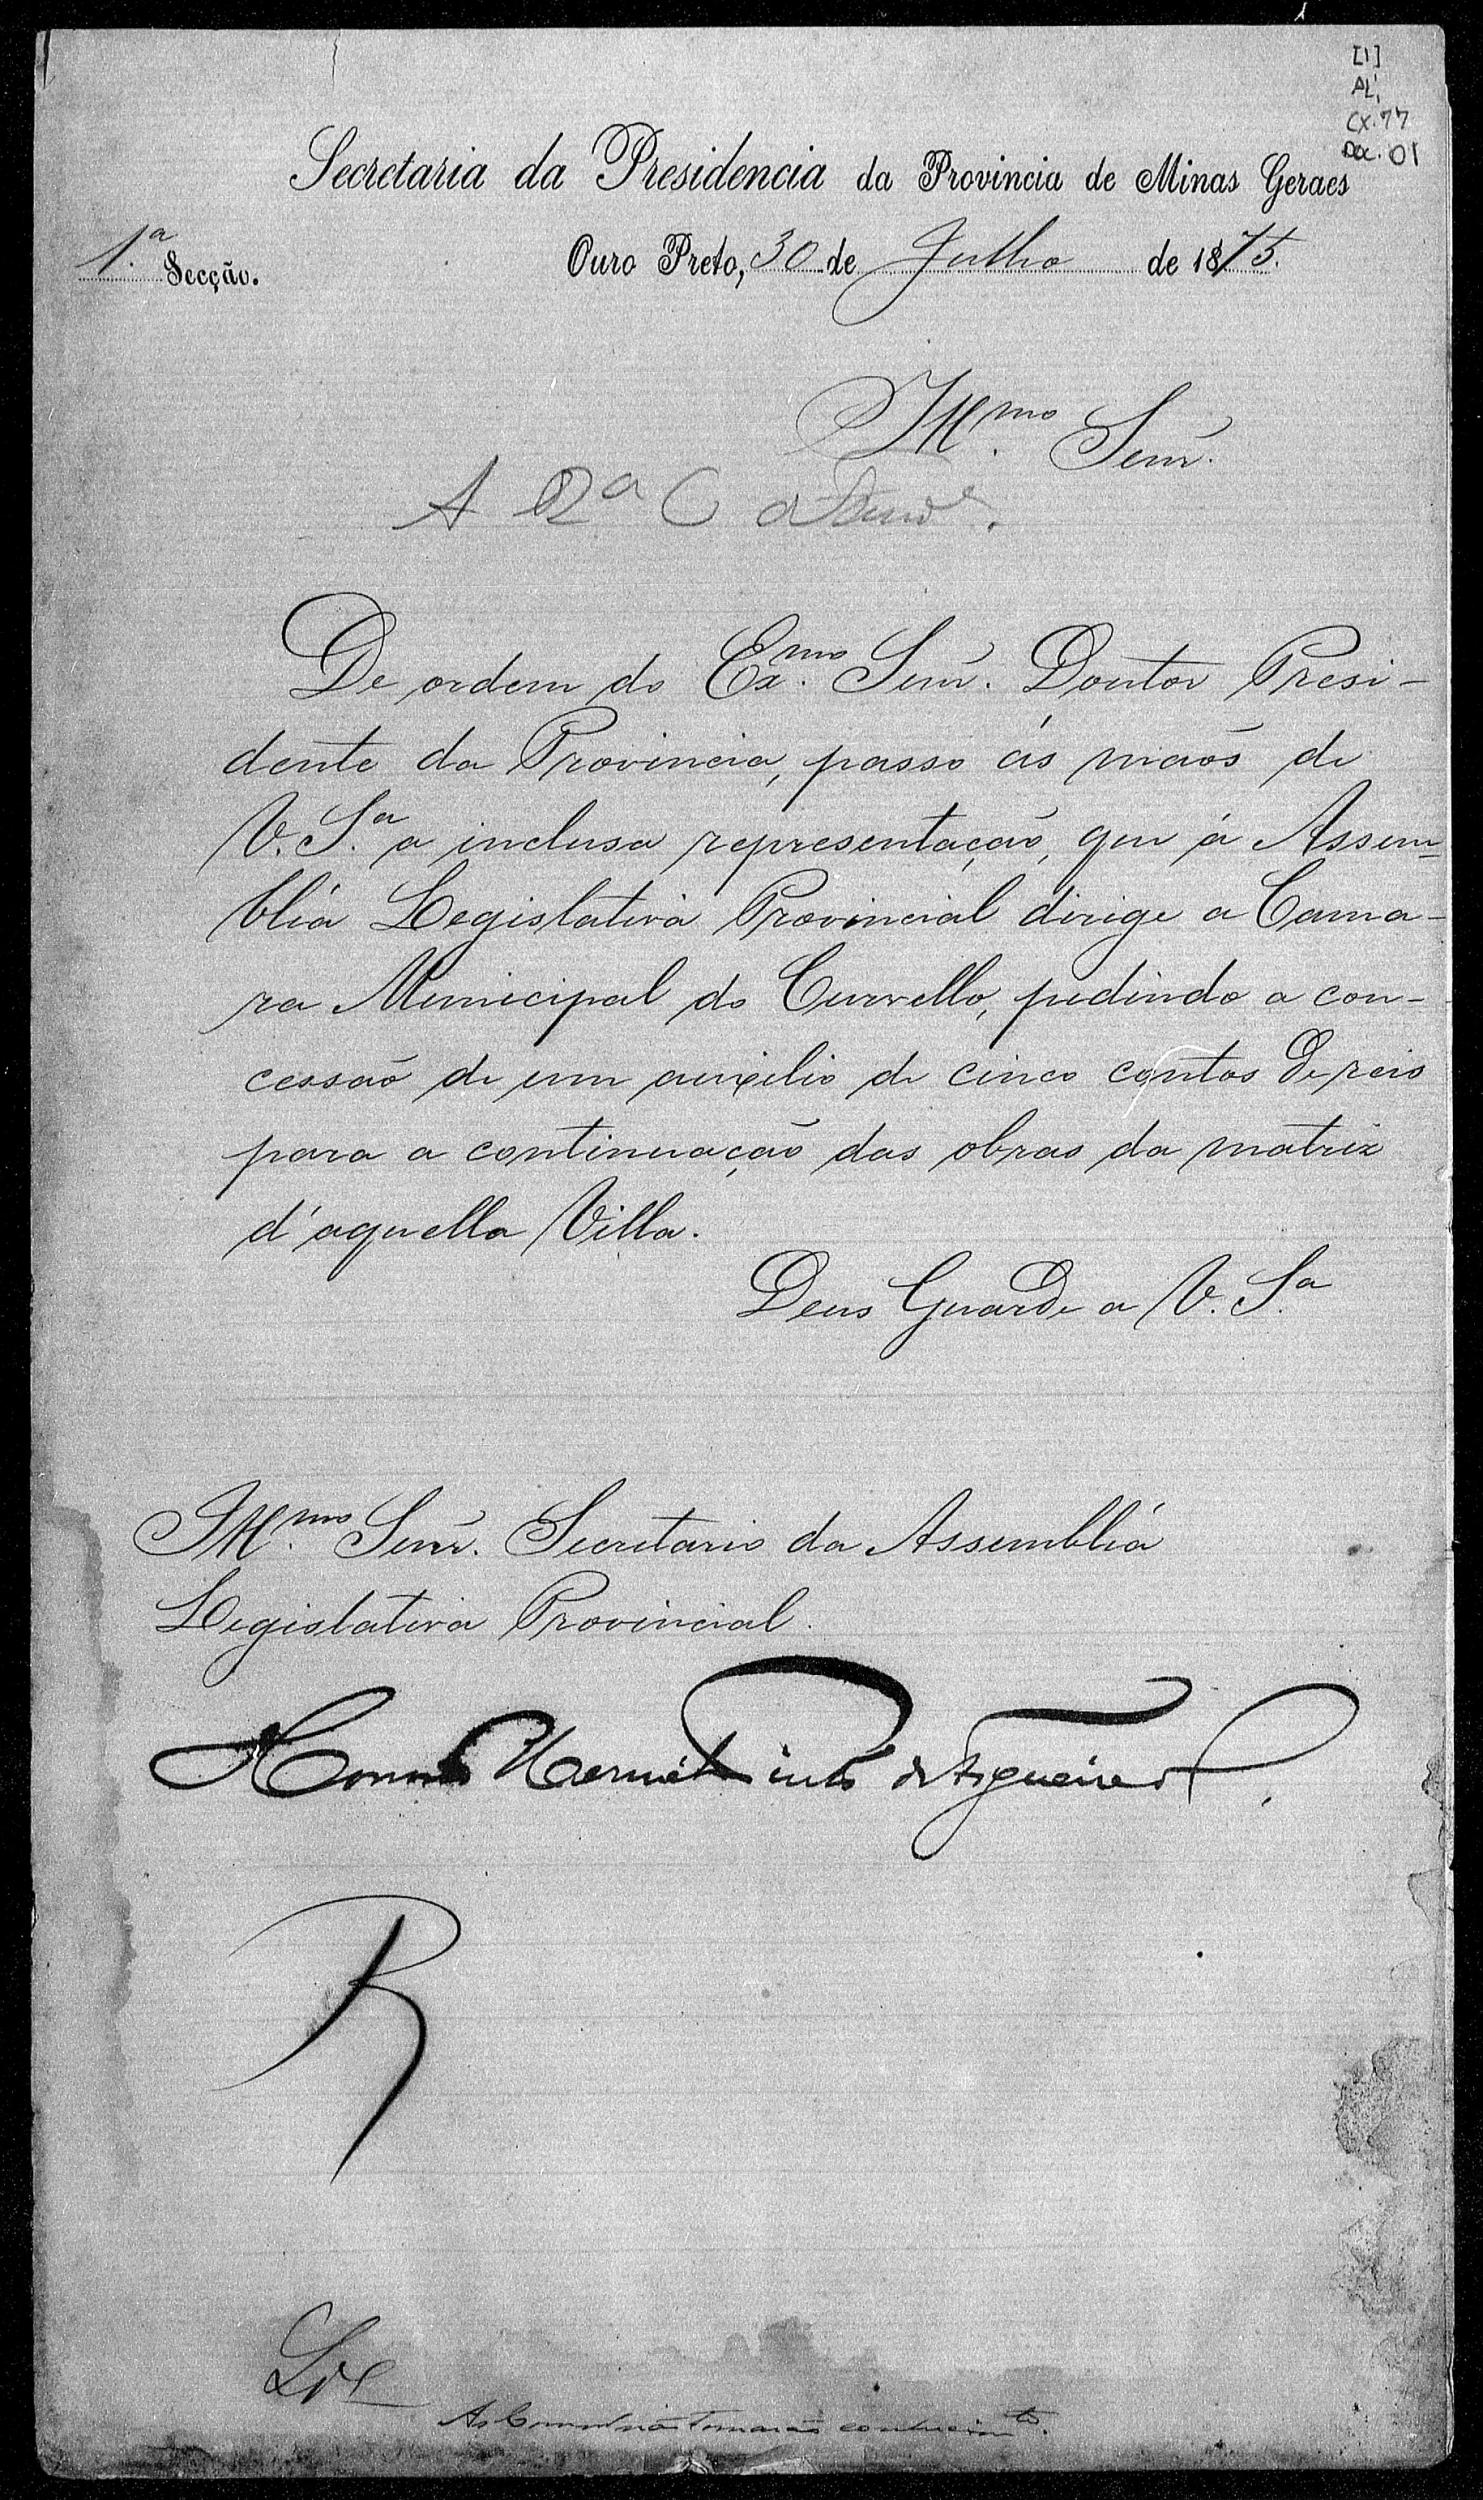 [1]
AL.
CX. 77
Doc. 01
Secretaria da Presidencia da Provincia de Minas Geraes
1.ª Secção.
Ouro Preto, 30 de Julho de 1875.
Illmo. Senr.
A 2ª C
De ordem do Exmo. Senr. Doutor Presi-
dente da Provincia, passo ás maõs de
V. S.ª a inclusa representaçaõ, que á Assem-
bléa Legislativa Provincial dirige a Cama-
ra Municipal do Curvello, pedindo a con-
cessaõ de um auxilio de cinco contos de reis
para a continuaçaõ das obras da matriz
d'aquella Villa.
Deus Guarde a V. S.ª
Illmo. Senr. Secretario da Assembléa
Legislativa Provincial.
Pinto de Figueiredo.
R